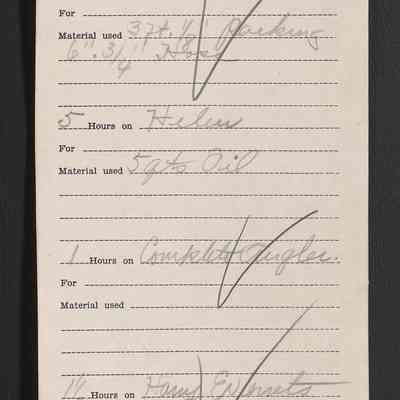 For
Material used 3 7ft. 1/8" Packing
6" 3/4" Hose
5 Hours on Helen
For
Material used 5 qts Oil
1 Hours on Complete Angler.
For
Material used
1½ Hours on Harry